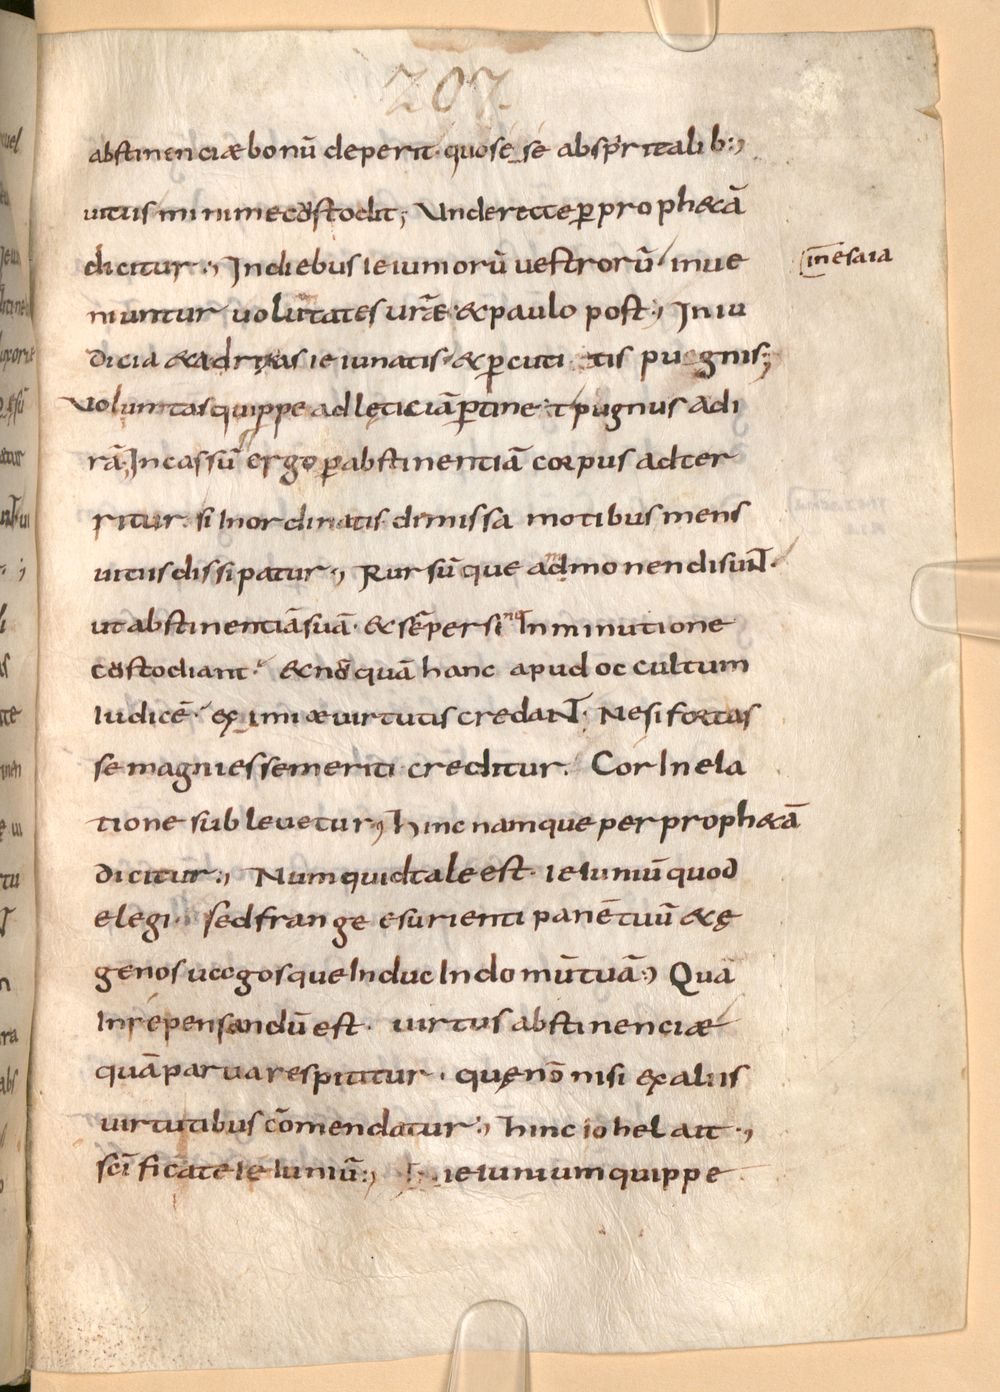 207.
abstinenciæ bonū deperit· quose se abspr̄italib:,
uitiis minime cōstodit; Unde recte ꝑ prophetā
dicitur:, In diebus ieiuniorū uestrorū inue
niuntur uoluntates urāe· & paulo post:, In iu
in esaia
dicia & ad rixas ieiunatis· & ꝑcutitis pugnis;
Voluntas quippe ad lęticiā ꝑtine·t pugnus ad i
rā; Incassū ergo ꝑ abstinentiā corpus adter
ritur· si Inordinatis dimissa motibus mens
uitiis dissipatur:, Rursūque admonendi sunt·
ut abstinentiā suā· & sēper sinē Inminutione
cōstodiant· & nō quā hanc apud occultum
Iudicē· exīmiæ uirtutis credant· Ne si fortas
se magni esse meriti creditur· Cor In ela
tione subleuetur, hinc namque per prophetā
dicitur:, Numquid tale est· ieIuniū quod
elegi· sed frange esurienti panē tuū & ę
genos uacgosque Induc In domū tuā:, Qua
In re pensandū est· uirtus abstinenciæ
quā parua respicitur· quę nō nisi ex aliis
uirtutibus cōmendatur:, hinc iohel ait·,
scīficate IeIuniū:, ieIunium quippe